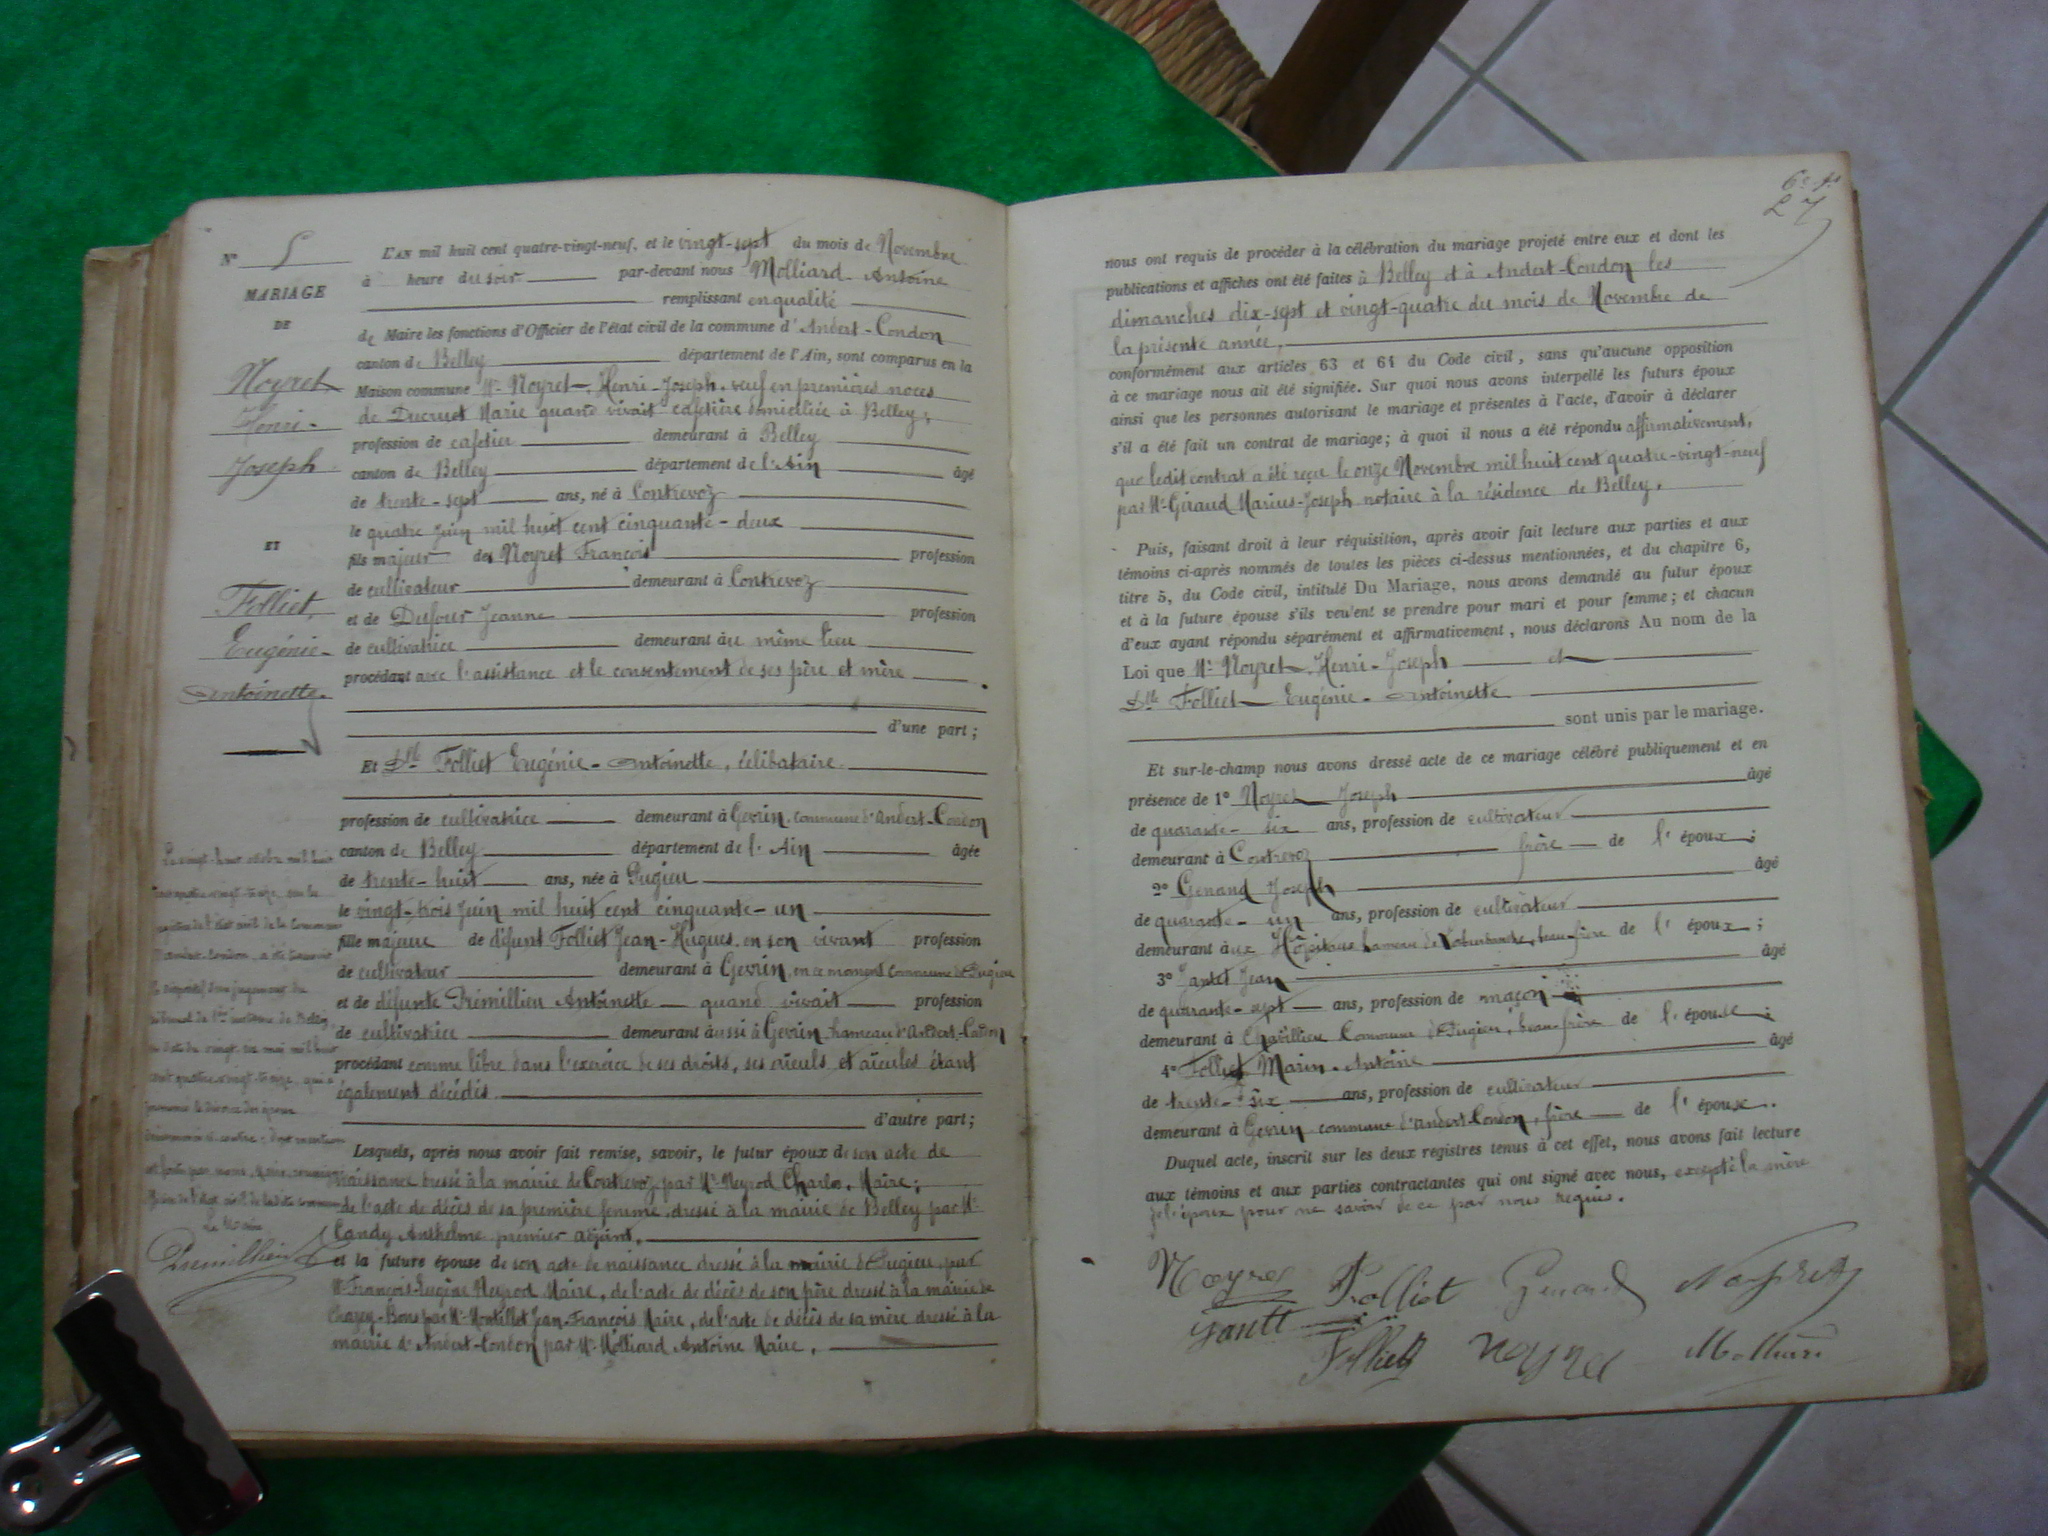 N° 5
MARIAGE
DE
Noyret
Henri-
Joseph
ET
Folliet,
Eugénie-
Antoinette.
L'AN mil huit cent quatre-vingt-neuf, et le vingt-sept du mois de Novembre
à heure du soir par-devant nous Molliard Antoine
remplissant en qualité
de Maire les fonctions d'Officier de l'état civil de la commune d'Andert-Condon
canton de Belley département de l'Ain, sont comparus en la
Maison commune Mr Noyret, Henri-Joseph, veuf en premières noces
de Ducruet Marie quand vivait cafetière domiciliée à Belley;
profession de cafetier demeurant à Belley
canton de Belley département de l'Ain âgé
de trente-sept ans, né à Contrevoz
le quatre Juin mil huit cent cinquante-deux
fils majeur de Noyret François profession
de cultivateur demeurant à Contrevoz
et de Dufour Jeanne profession
de cultivatrice demeurant au même lieu
procédant avec l'assistance et le consentement de ses père et mère
d'une part;
Et Dlle Folliet Eugénie-Antoinette, célibataire
profession de cultivatrice demeurant à Gevrin, commune d'Andert-Condon
canton de Belley département de l'Ain âgée
de trente-huit ans, née à Pugieu
le vingt-trois Juin mil huit cent cinquante-un
fille majeure de défunt Folliet Jean-Hugues, en son vivant profession
de cultivateur demeurant à Gevrin, en ce moment commune de Pugieu
et de défunte Prémillieu Antoinette quand vivait profession
de cultivatrice demeurant aussi à Gevrin hameau d'Andert-Condon
procédant comme libre dans l'exercice de ses droits, ses aïeuls et aïeules étant
également décédés
d'autre part;
Lesquels, après nous avoir fait remise, savoir, le futur époux de son acte de
naissance dressé à la mairie de Contrevoz par Mr Neyrod Charles, Maire;
de l'acte de décès de sa première femme dressé à la mairie de Belley par Mr
Candy Anthelme premier adjoint,
et la future épouse de son acte de naissance dressé à la mairie de Pugieu, par
Mr François-Eugène Neyrod Maire, de l'acte de décès de son père dressé à la mairie de
Chazey-Bons par Mr Montillet Jean-François Maire, de l'acte de décès de sa mère dressé à la
mairie d'Andert-Condon par Mr Molliard Antoine Maire,
Le vingt-huit octobre mil huit
cent quatre-vingt-treize, sur le
registre de l'état civil de la Commune
d'Andert-Condon, a été transcrit
le dispositif d'un jugement du
tribunal de 1ère instance de Belley
en date du vingt-six mai mil huit
cent quatre-vingt-treize, qui a
prononcé le divorce des époux
dénommés ci-contre. Dont mention
est faite par nous, Maire,
officier de l'état civil de la dite commune
Le Maire
Premillieu
27
nous ont requis de procéder à la célébration du mariage projeté entre eux et dont les
publications et affiches ont été faites à Belley et à Andert-Condon les
dimanches dix-sept et vingt-quatre du mois de Novembre de
la présente année,
conformément aux articles 63 et 64 du Code civil, sans qu'aucune opposition
à ce mariage nous ait été signifiée. Sur quoi nous avons interpellé les futurs époux
ainsi que les personnes autorisant le mariage et présentes à l'acte, d'avoir à déclarer
s'il a été fait un contrat de mariage; à quoi il nous a été répondu affirmativement,
que ledit contrat a été reçu le onze Novembre mil huit cent quatre-vingt-neuf
par Mr Giraud Marius-Joseph notaire à la résidence de Belley.
Puis, faisant droit à leur réquisition, après avoir fait lecture aux parties et aux
témoins ci-après nommés de toutes les pièces ci-dessus mentionnées, et du chapitre 6,
titre 5, du Code civil, intitulé Du Mariage, nous avons demandé au futur époux
et à la future épouse s'ils veulent se prendre pour mari et pour femme; et chacun
d'eux ayant répondu séparément et affirmativement, nous déclarons Au nom de la
Loi que Mr Noyret, Henri-Joseph et
Dlle Folliet Eugénie-Antoinette
sont unis par le mariage.
Et sur-le-champ nous avons dressé acte de ce mariage célébré publiquement et en
présence de 1° Noyret Joseph âgé
de quarante-six ans, profession de cultivateur
demeurant à Contrevoz frère de l'époux;
2° Genand Joseph âgé
de quarante-un ans, profession de cultivateur
demeurant aux Hôpitaux hameau de beau-frère de l'époux;
3° Jantet Jean âgé
de quarante-sept ans, profession de maçon
demeurant à Chavillieu Commune de Pugieu, beau-frère de l'épouse;
4° Folliet Marin-Antoine âgé
de trente-six ans, profession de cultivateur
demeurant à Gevrin commune d'Andert-Condon, frère de l'épouse.
Duquel acte, inscrit sur les deux registres tenus à cet effet, nous avons fait lecture
aux témoins et aux parties contractantes qui ont signé avec nous, excepté la mère
de l'époux pour ne savoir de ce par nous requis.
Noyret Folliet Genand Noyret
Jantet
Folliet Noyret Molliard